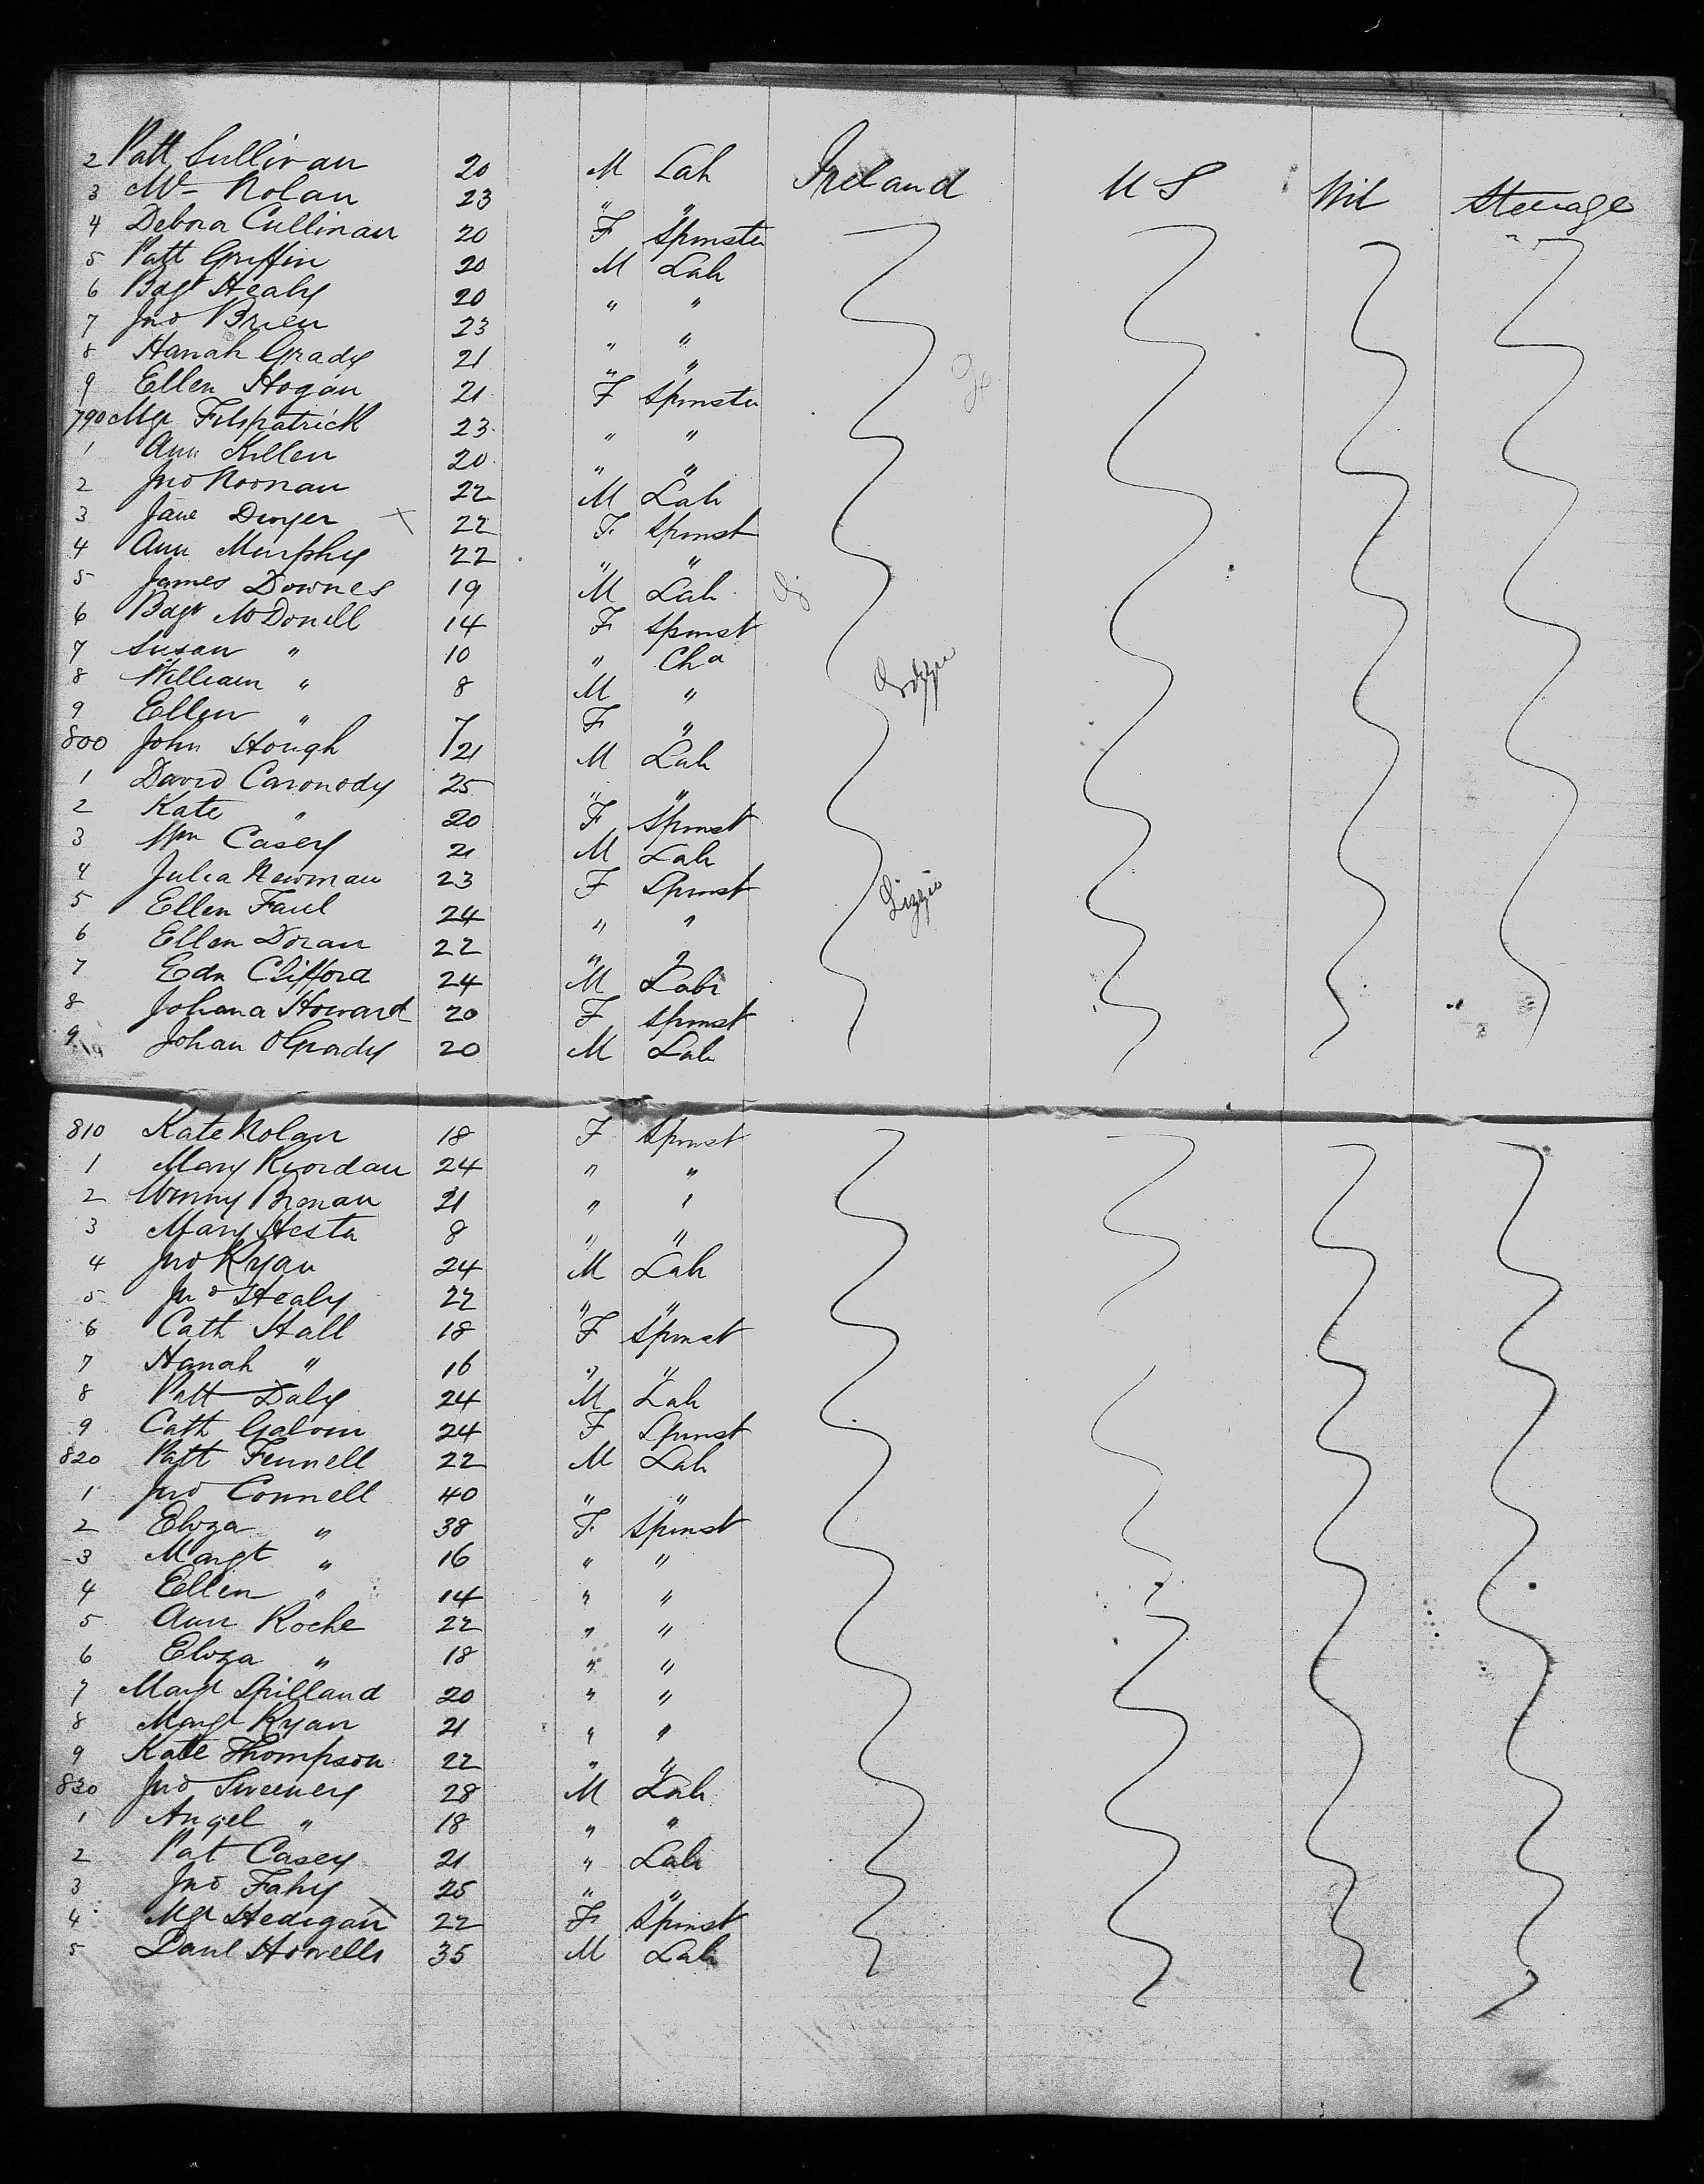 2 Patt Sullivan 20 M Lab Ireland U S Nil Steerage
3 Wm Nolan 23 " "
4 Debora Cullinan 20 F Spinster
5 Patt Griffin 20 M Lab
6 Bdgt Healy 20 " "
7 Jno Brien 23 " "
8 Hanah Grady 21 " "
9 Ellen Hogan 21 F Spinster
790 Mgt Fitzpatrick 23 " "
1 Ann Killen 20 " "
2 Jno Noonan 22 M Lab
3 Jane Dwyer x 22 F Spinst
4 Ann Murphy 22 " "
5 James Downes 19 M Lab
6 Bdgt McDonell 14 F Spinst
7 Susan " 10 " Chd
8 William " 8 M "
9 Ellen " 7 F "
800 John Hough 21 M Lab
1 David Carmody 25 " "
2 Kate " 20 F Spinst
3 Wm Casey 21 M Lab
4 Julia Newman 23 F Spinst
Lizzie
5 Ellen Faul 24 " "
6 Ellen Doran 22 " "
7 Edn Clifford 24 M Lab
8 Johana Howard 20 F Spinst
9 Johan OGrady 20 M Lab
810 Kate Nolan 18 F Spinst
1 Mary Riordan 24 " "
2 Winny 21 " "
3 Mary Hester 8 " "
4 Jno Ryan 24 M Lab
5 Jno Healy 22 " "
6 Cath Hall 18 F Spinst
7 Hanah " 16 " "
8 Patt Daly 24 M Lab
9 Cath Galvin 24 F Spinst
820 Patt Fennell 22 M Lab
1 Jno Connell 40 " "
2 Eliza " 38 F Spinst
3 Margt " 16 " "
4 Ellen " 14 " "
5 Ann Roche 22 " "
6 Eliza " 18 " "
7 Margt Spilland 20 " "
8 Margt Ryan 21 " "
9 Kate Thompson 22 " "
830 Jno Sweeney 28 M Lab
1 Angel " 18 " "
2 Pat Casey 21 " Lab
3 Jno Fahy 25 " "
4 Mgt Hedigan x 22 F Spinst
5 Danl Howells 35 M Lab